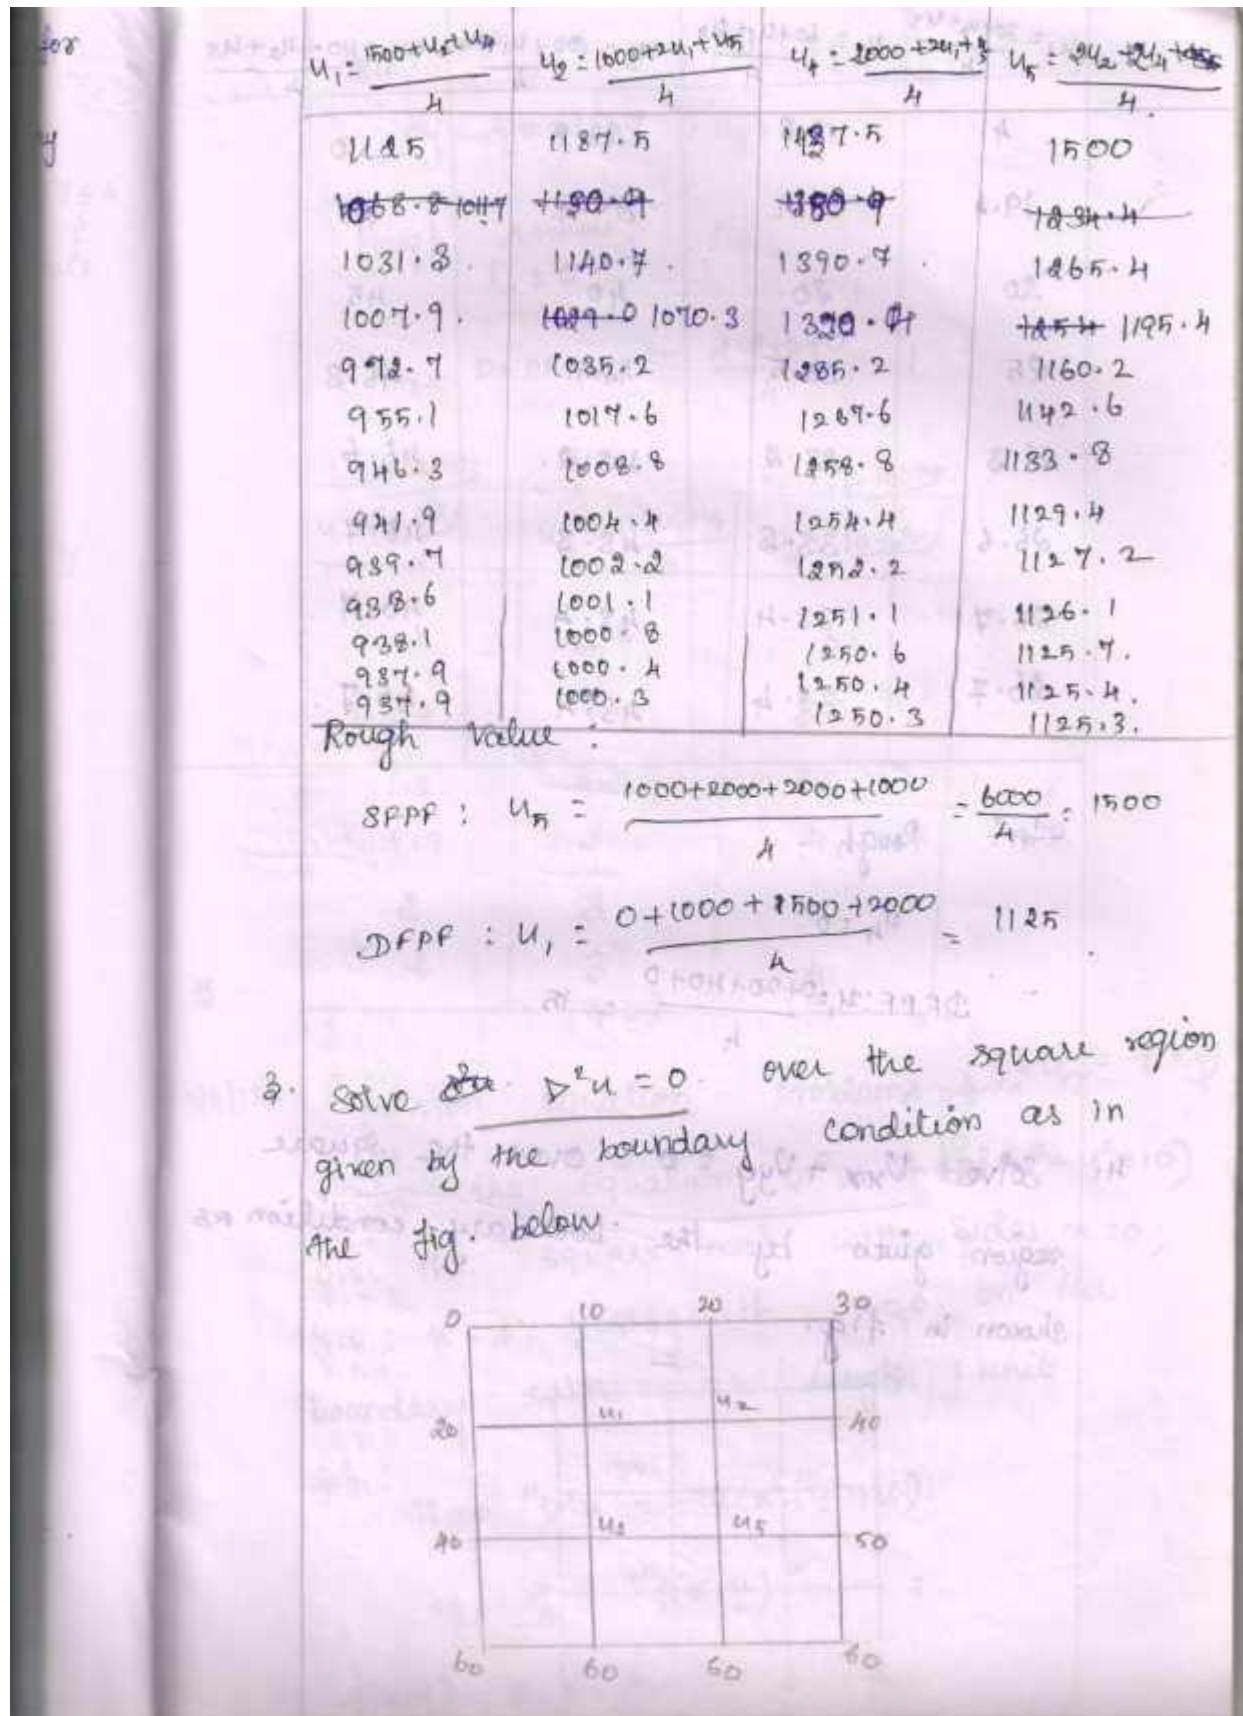 for
u₁ = 1500+u₂+u₄ / 4 u₂ = 1000+2u₁+u₅ / 4 u₄ = 2000+2u₁+u₅ / 4 u₅ = 2u₂+2u₄ / 4
1125 1187.5 1437.5 1500
1068.8 1047 1180.9 1380.9 1234.4
1031.3 1140.7 1390.7 1265.4
1007.9 1029.0 1070.3 1320.4 1254 1195.4
972.7 1035.2 1285.2 1160.2
955.1 1017.6 1267.6 1142.6
946.3 1008.8 1258.8 1133.8
941.9 1004.4 1254.4 1129.4
939.7 1002.2 1252.2 1127.2
938.6 1001.1 1251.1 1126.1
938.1 1000.8 1250.6 1125.7.
937.9 1000.4 1250.4 1125.4.
937.9 1000.3 1250.3 1125.3.
Rough Value :
SFPF : u₅ = 1000+2000+2000+1000 / 4 = 6000 / 4 = 1500
DFPF : u₁ = 0+1000+1500+2000 / 4 = 1125.
3. Solve ∇²u = 0. over the square region
given by the boundary condition as in
the fig. below.
0 10 20 30
20 u₁ u₂ 40
40 u₃ u₅ 50
60 60 60 60